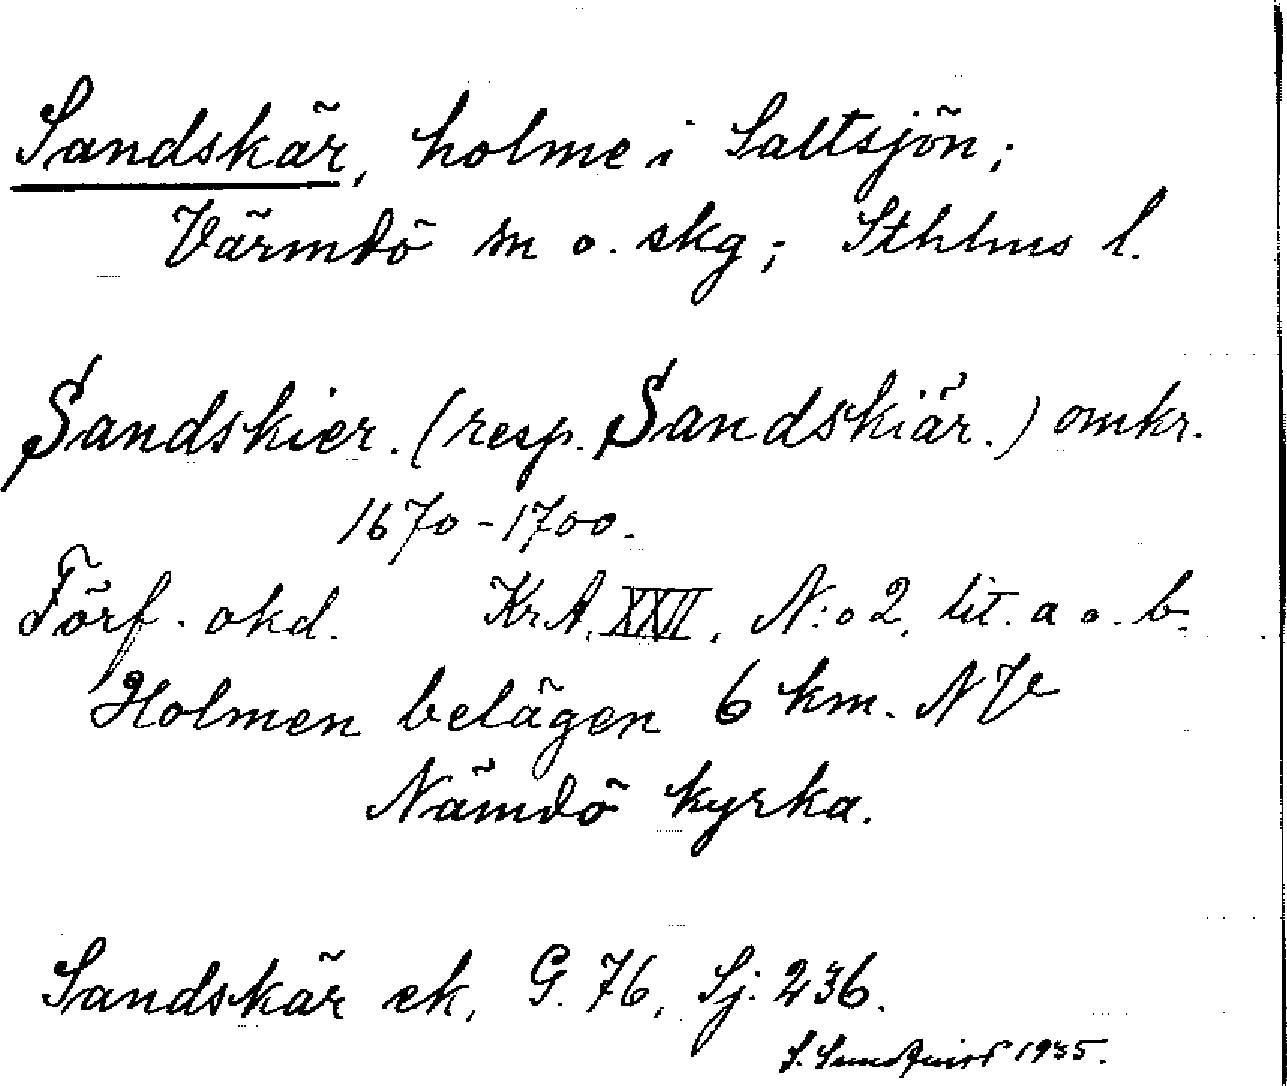 Sandskär, holme i Saltsjön;
Värmdö sn o. skg; Sthlms l.
Sandskier. (resp. Sandskiär.) omkr.
1670-1700.
Förf. okd. KrA. XXVI, N:o 2. lit. a o. b.
Holmen belägen 6 km. NV
Nämdö kyrka.
Sandskär ek. G. 76, Sj. 236.
S. Sundquist 1935.